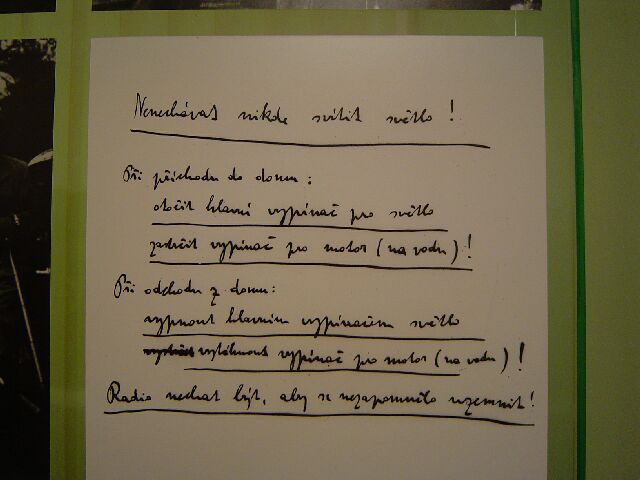 Nenechávat nikde svítit světlo!
Při příchodu do domu:
otočit hlavní vypínač pro světlo
vypínač pro motor (na vodu)!
Při odchodu z domu:
vypnout hlavním vypínačem světlo
vytáhnout vypínač pro motor (na vodu)!
Radio nechat být, aby se nezapomnělo uzemnit!